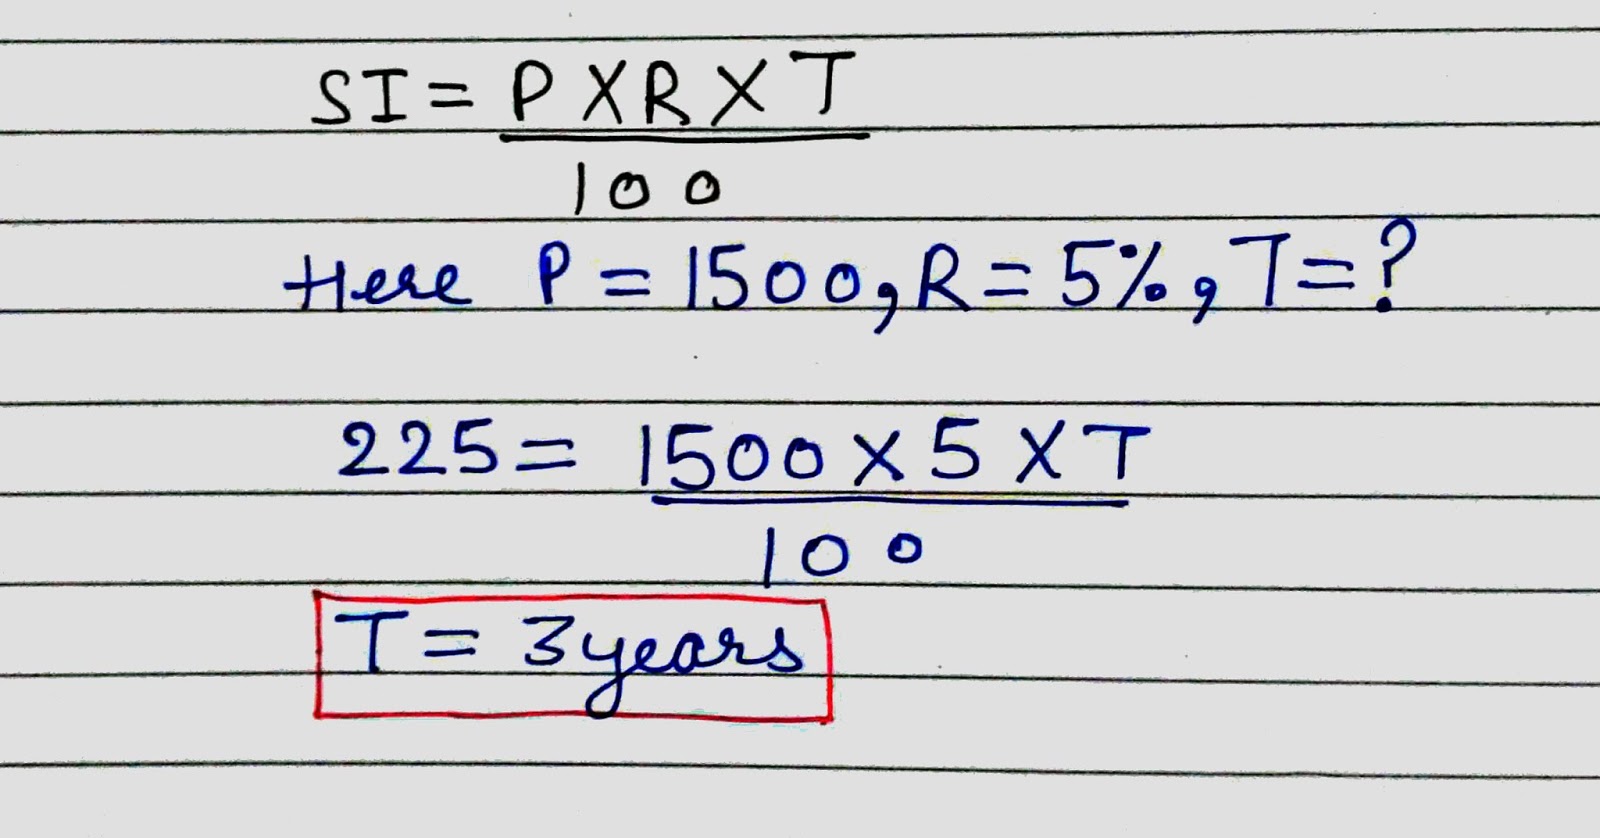 SI = P X R X T
100
Here P = 1500, R = 5%, T = ?
225 = 1500 X 5 X T
100
T = 3 years